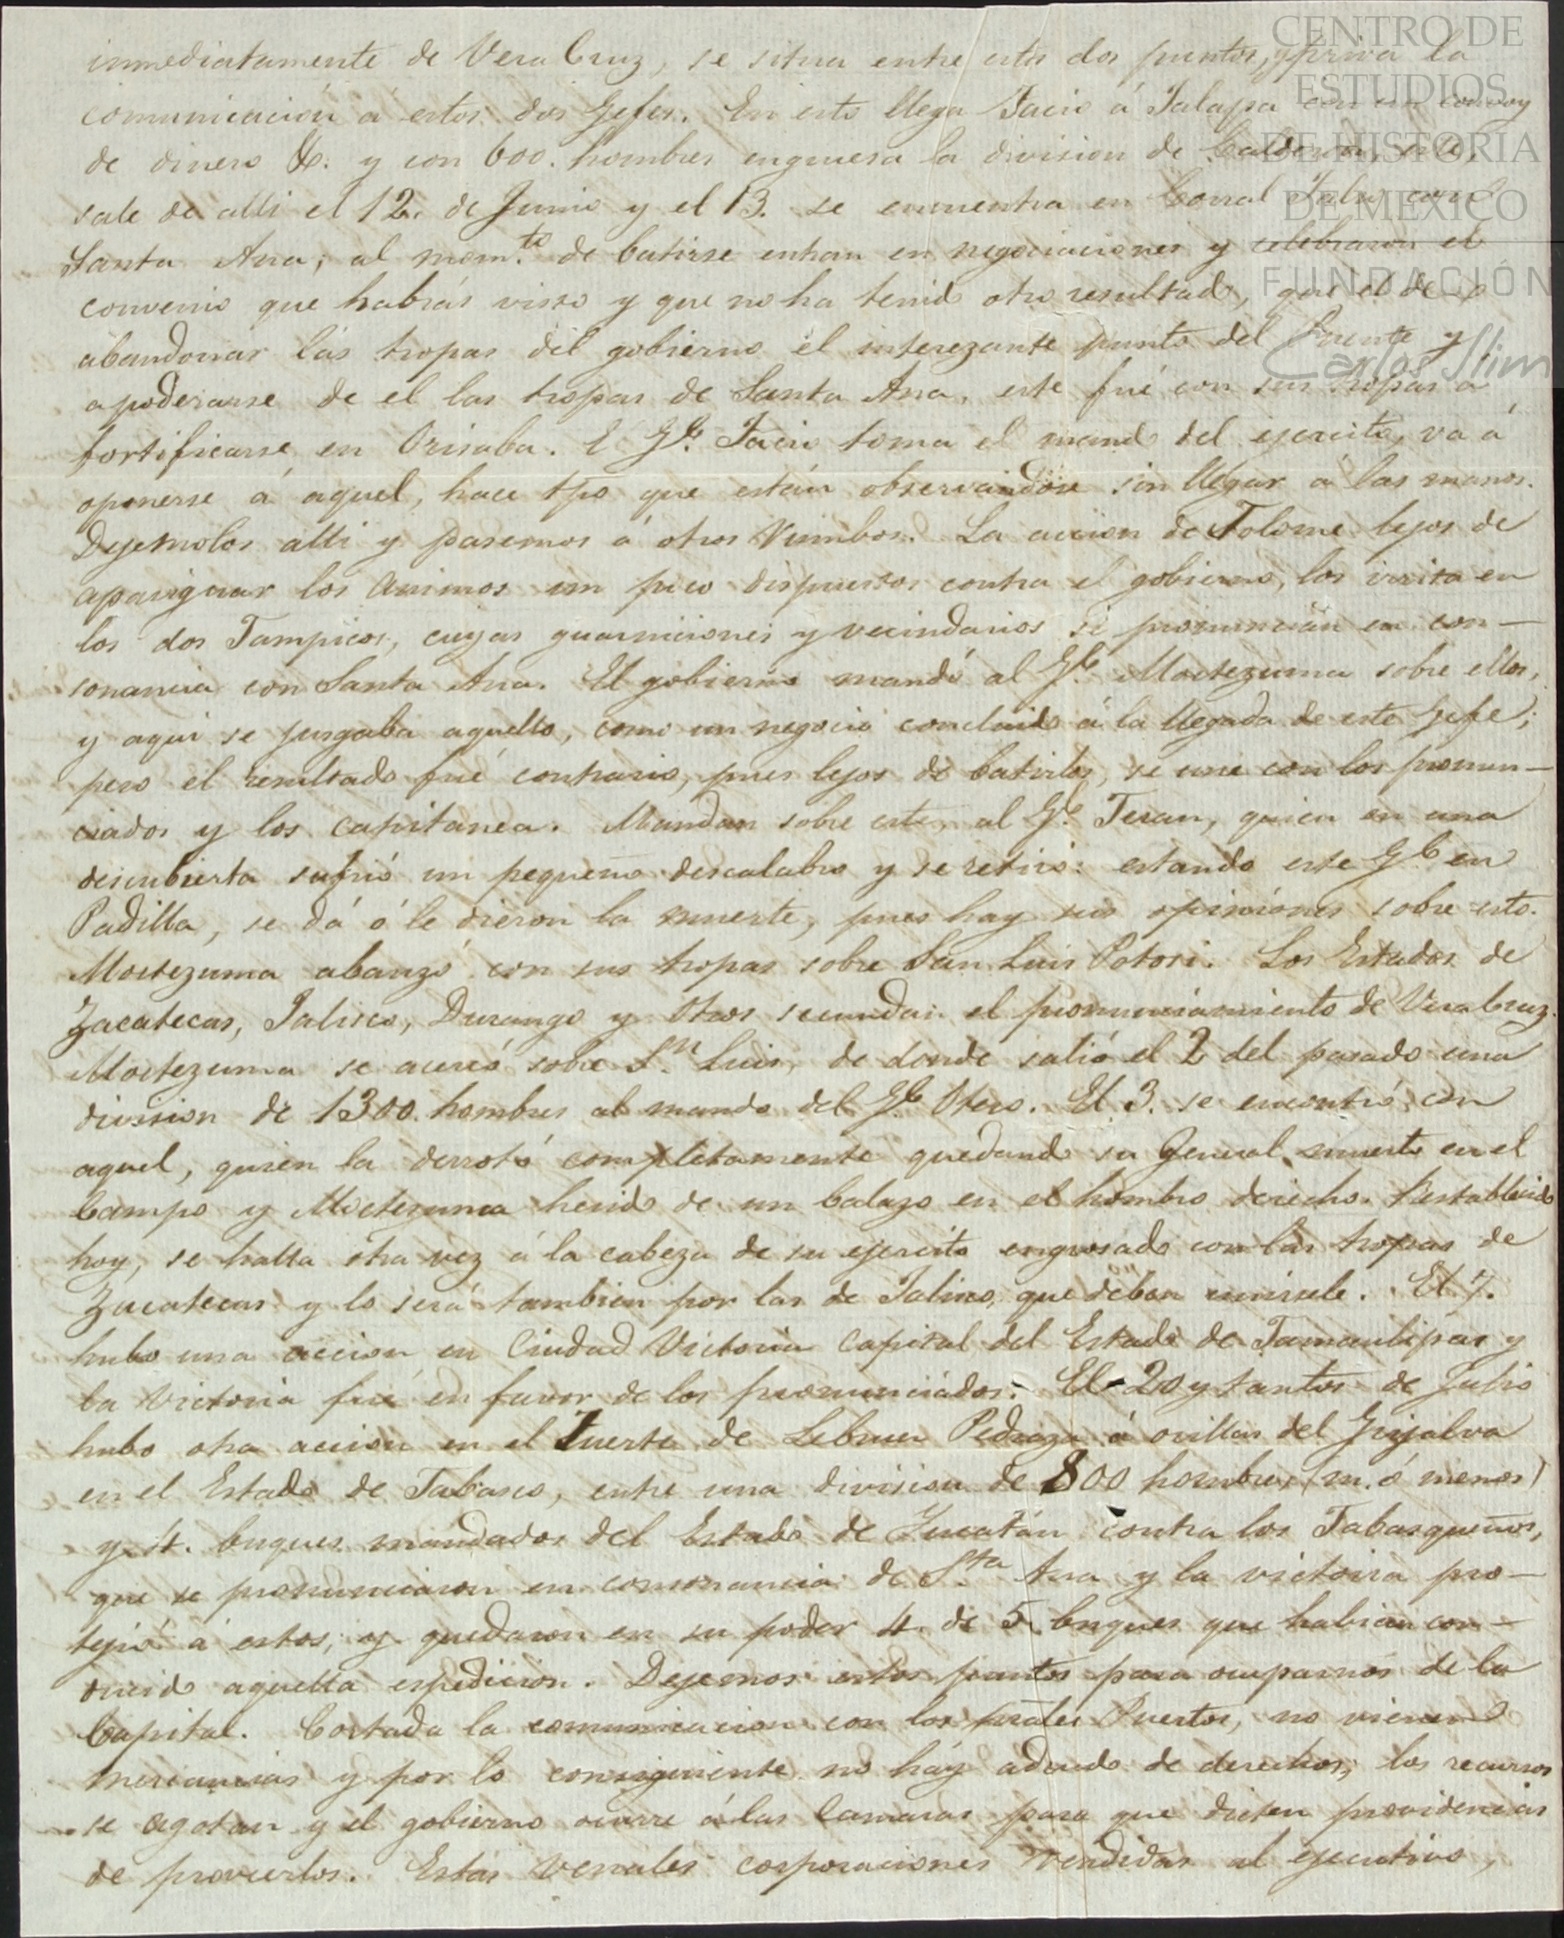 CENTRO DE
ESTUDIOS
DE HISTORIA
DE MEXICO
FUNDACIÓN
Carlos Slim
inmediatamente de Vera Cruz, se situa entre estos dos puntos, y priva la
comunicación á estos dos Gefes. En esto llega Facio á Jalapa con un convoy
de dinero &. y con 600. hombres engruesa la division de Calderon, este,
sale de alli el 12. de Junio y el 13. se encuentra en Corral Falso con
Santa Ana; al mom.to de batirse entran en negociaciones y celebraron el
convenio que habrás visto y que no ha tenido otro resultado, que el de
abandonar las tropas del gobierno el interezante punto del Puente y
apoderarse de el las tropas de Santa Ana, este fué con sus tropas á
fortificarse en Orisaba. E Gl. Facio toma el mando del ejercito, va á
oponerse á aquel, hace tpo que están observandose sin llegar á las manos.
Dejemolos alli y pasemos á otros Rumbos. La accion de Tolome lejos de
apasiguar los animos un poco dispuestos contra el gobierno, los irrita en
los dos Tampicos, cuyas guarniciones y vecindarios se pronuncian en con-
sonancia con Santa Ana. El gobierno mandó al Gl. Moctezuma sobre ellos,
y aqui se jusgaba aquello, como un negocio concluido á la llegada de este Gefe;
pero el resultado fué contrario, pues lejos de batirlos, se une con los pronun-
ciados y los capitanea. Mandan sobre este, al Gl. Teran, quien en una
descubierta sufrió un pequeño descalabro y se retiró: estando este Gl. en
Padilla, se dá ó le dieron la muerte, pues hay sus opiniones sobre esto.
Moctezuma abanzó con sus tropas sobre San Luis Potosi. Los Estados de
Zacatecas, Jalisco, Durango y otros secundan el pronunciamiento de Vera Cruz.
Moctezuma se acercó sobre Sn. Luis, de donde salió el 2 del pasado una
division de 1300. hombres al mando del Gl. Otero. El 3. se encontró con
aquel, quien la derrotó completamente quedando su General muerto en el
Campo y Moctezuma herido de un balazo en el hombro derecho. Restablecido
hoy, se halla otra vez á la cabeza de su ejercito engrosado con las tropas de
Zacatecas y lo será tambien por las de Jalisco, que deben unirsele. El 7.
hubo una accion en Ciudad Victoria Capital del Estado de Tamaulipas y
la Victoria fué en favor de los pronunciados. El 20 y tantos de Julio
hubo otra accion en el Fuerte de Pedraza á orillas del Grijalva
en el Estado de Tabasco, entre una division de 800 hombres (m. ó menos)
y 4. buques mandados del Estado de Yucatán contra los Tabasqueños,
que se pronunciaron en consonancia de Sta. Ana y la victoria pro-
tejió á estos, y quedaron en su poder 4. de 5. buques que habian con-
ducido aquella espedicion. Dejemos estos puntos para ocuparnos de la
Capital. Cortada la comunicacion con los prales Puertos, no vienen
mercancias y por lo consiguiente no háy adeudo de derechos; los recursos
se agotan y el gobierno ocurre á las Camaras para que dicten providencias
de proverlos. Estas venales corporaciones vendidas al ejecutivo,